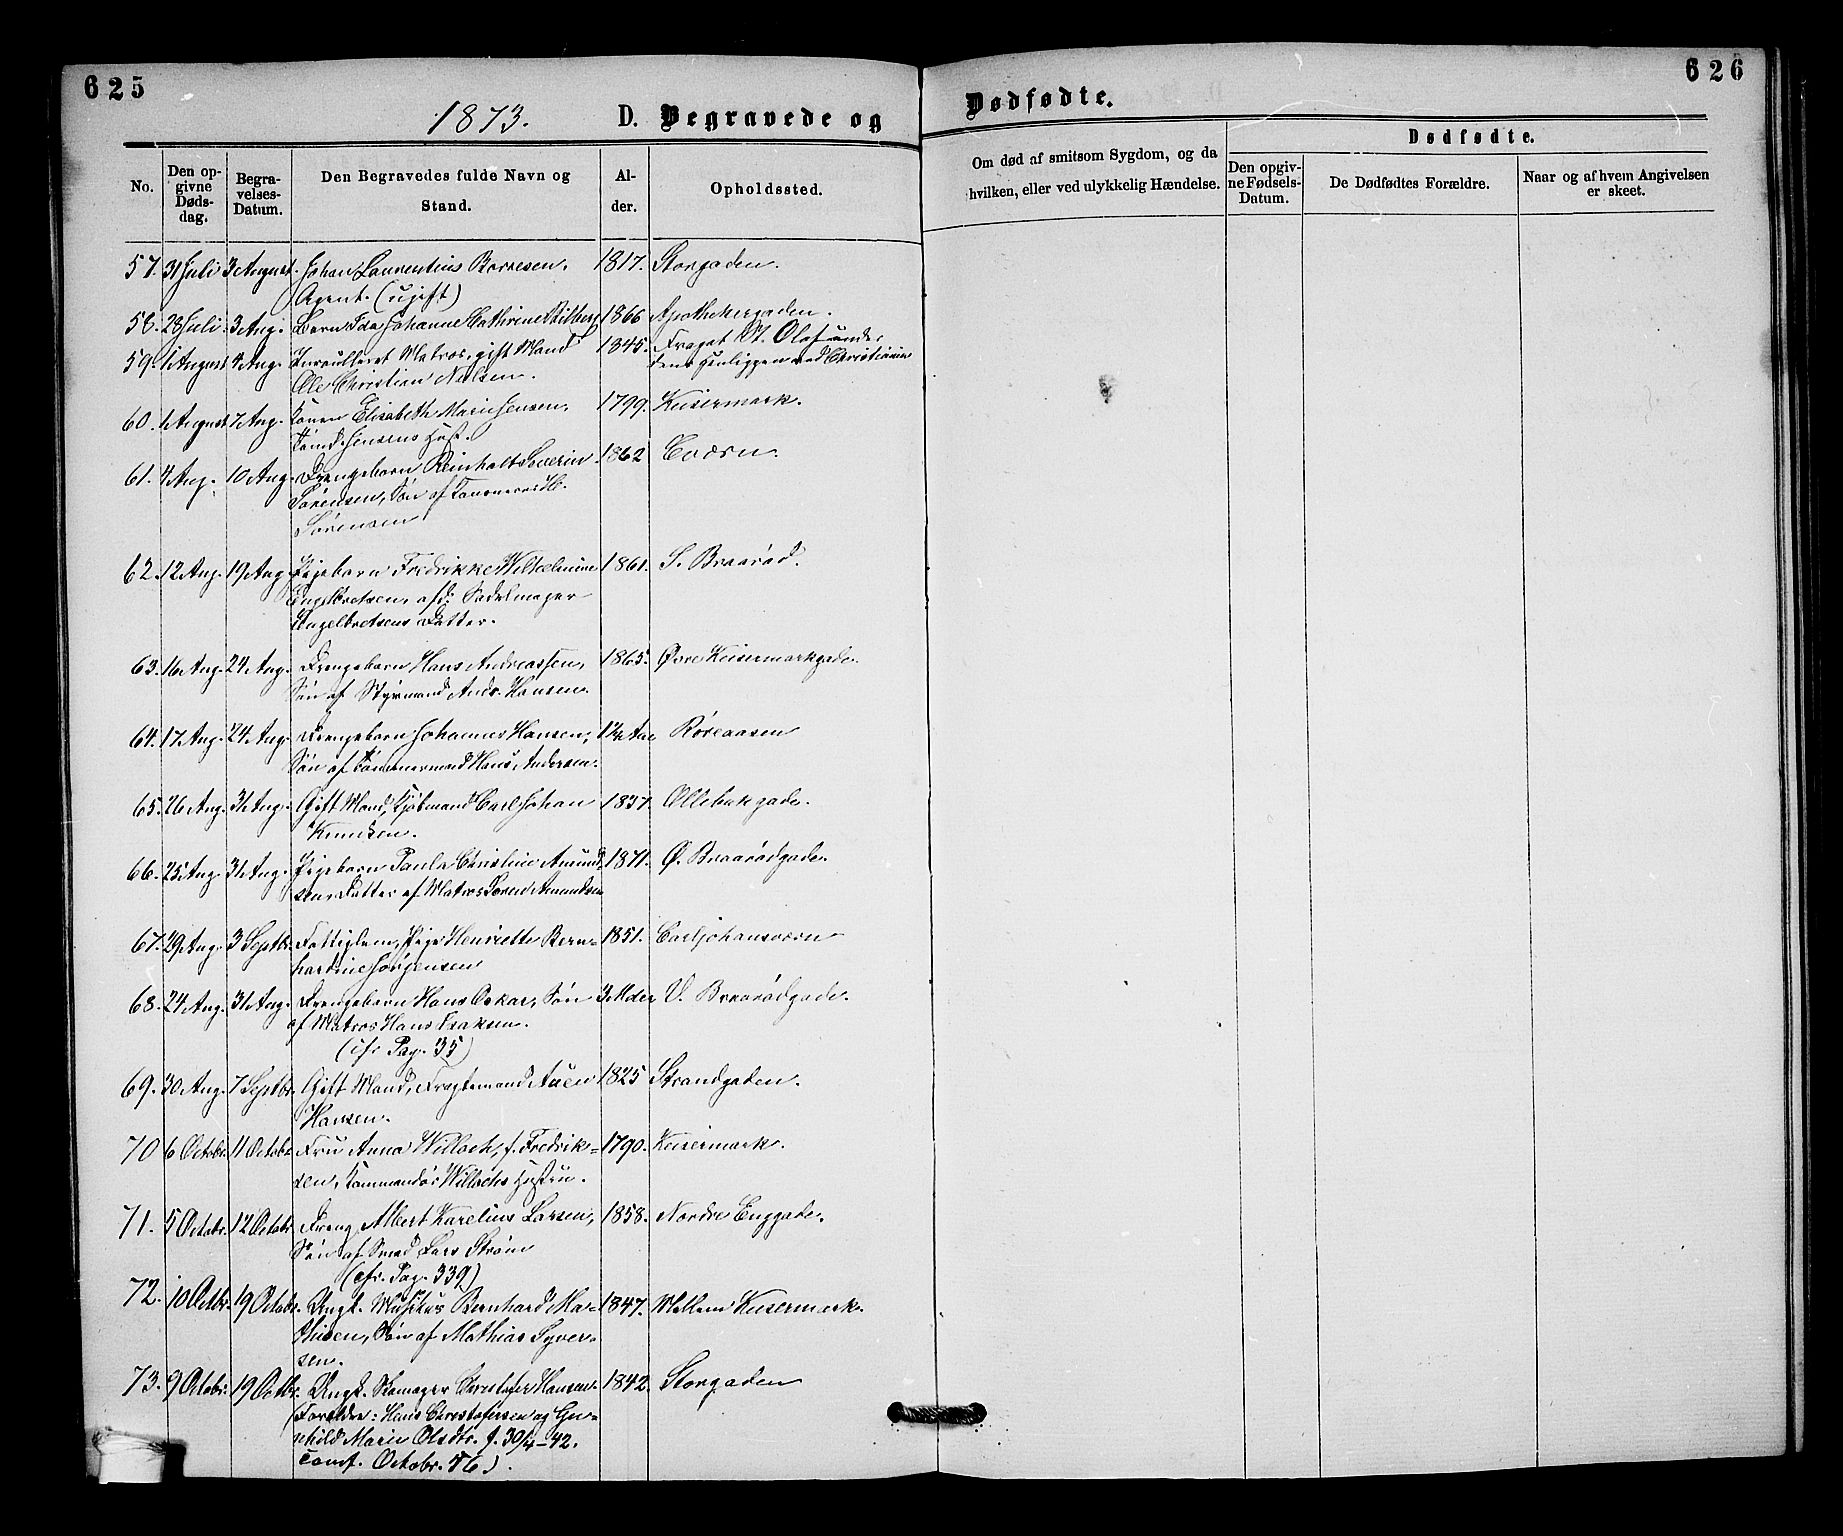 625
626
1873. D. Begravede og Dødfødte.
No.
Den opgivne Dødsdag.
Begravelses-Datum.
Den Begravedes fulde Navn og Stand.
Alder.
Opholdssted.
Om død af smitsom Sygdom, og da hvilken, eller ved ulykkelig Hændelse.
Dødfødte.
Den opgivne Fødsels-Datum.
De Dødfødtes Forældre.
Naar og af hvem Angivelsen er skeet.
57. 31 Juli 3 August. Johan Laurentius 1817. Storgaden.
Agent. (ugift)
58. 28 Juli. 3 Aug. Barn Ida Johanne Cathrine 1866 Apothekergaden.
59. 1 August 4 Aug. Matros, gift Mand 1845. Fregat St. Olaf under
Ole Christian Nielsen. dens Henliggen ved Christiania
60. 1 August 7 Aug. Konen Elisabeth Marie Jensen, 1799. Keisermark.
Jensens Hust.
61. 4 Aug. 10 Aug. Drengebarn Reinholt Severin 1862 Hværn.
Sørensen, Søn af Tømmerm. H.
Sørensen
62. 12 Aug. 19 Aug. Pigebarn Fredrikke Wilhelmine 1861. S. Braarød.
Engelbretsen, afd: Sadelmager
Engelbretsens Datter.
63. 16 Aug. 24 Aug. Drengebarn Hans Andreassen, 1865. Øvre Keisermarkgade.
Søn af Styrmand Andr. Hansen.
64. 17 Aug. 24 Aug. Drengebarn Johannes Hansen, Aar Røreaasen
Søn af Tømmermand Hans Andersen.
65. 26 Aug. 31 Aug. Gift Mand, Kjøbmand Carl Johan 1837. Ollebakgade.
Knudsen.
66. 25 Aug. 31 Aug. Pigebarn Paula Christine Amund- 1871. Ø. Braarødgade.
sen Datter af Matros Søren Amundsen
67. 29 Aug. 3 Septbr. Fattiglem, Pige Henriette Bern- 1851. Carljohansværn
hardine Jørgensen
68. 24 Aug. 31 Aug. Drengebarn Hans Oskar, Søn 3 Mdr V. Braarødgade.
af Matros Hans Isaksen.
(cfr Pag. 35)
69. 30 Aug. 7 Septbr. Gift Mand, Fragtemand Auen 1825 Strandgaden.
Hansen.
70 6 Octobr. 11 Octobr Fru Anna Willoch, f. Fredrik- 1790. Keisermark.
sen, Kommandør Willochs Hustru.
71. 5 Octobr. 12 Octobr. Dreng Albert Karelius Larsen, 1858. Nordre Enggade.
Søn af Smed Lars Strøm
(cfr. Pag. 339)
72. 10 Octbr. 19 Octobr. Ungk. Musikus Bernhard Ma- 1847. Mellem Keisermark.
thisen, Søn af Mathias Syver-
sen.
73. 9 Octobr. 19 Octbr. Ungk. Skomager Christofer Hansen. 1842. Storgaden
(Forældre: Hans Christofersen og Gu-
nhild Marie Olsdtr. f. 30/4-42.
Conf. Octobr. 56).